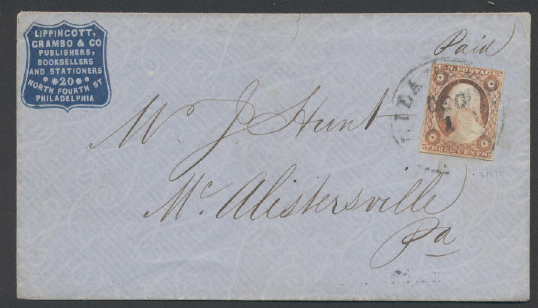 LIPPINCOTT,
GRAMBO & CO
PUBLISHERS,
BOOKSELLERS
AND STATIONERS
*20*
NORTH FOURTH ST
PHILADELPHIA
Paid
U.S. POSTAGE
THREE CENTS
Mr J. Hunt
Mc Alistersville
Pa